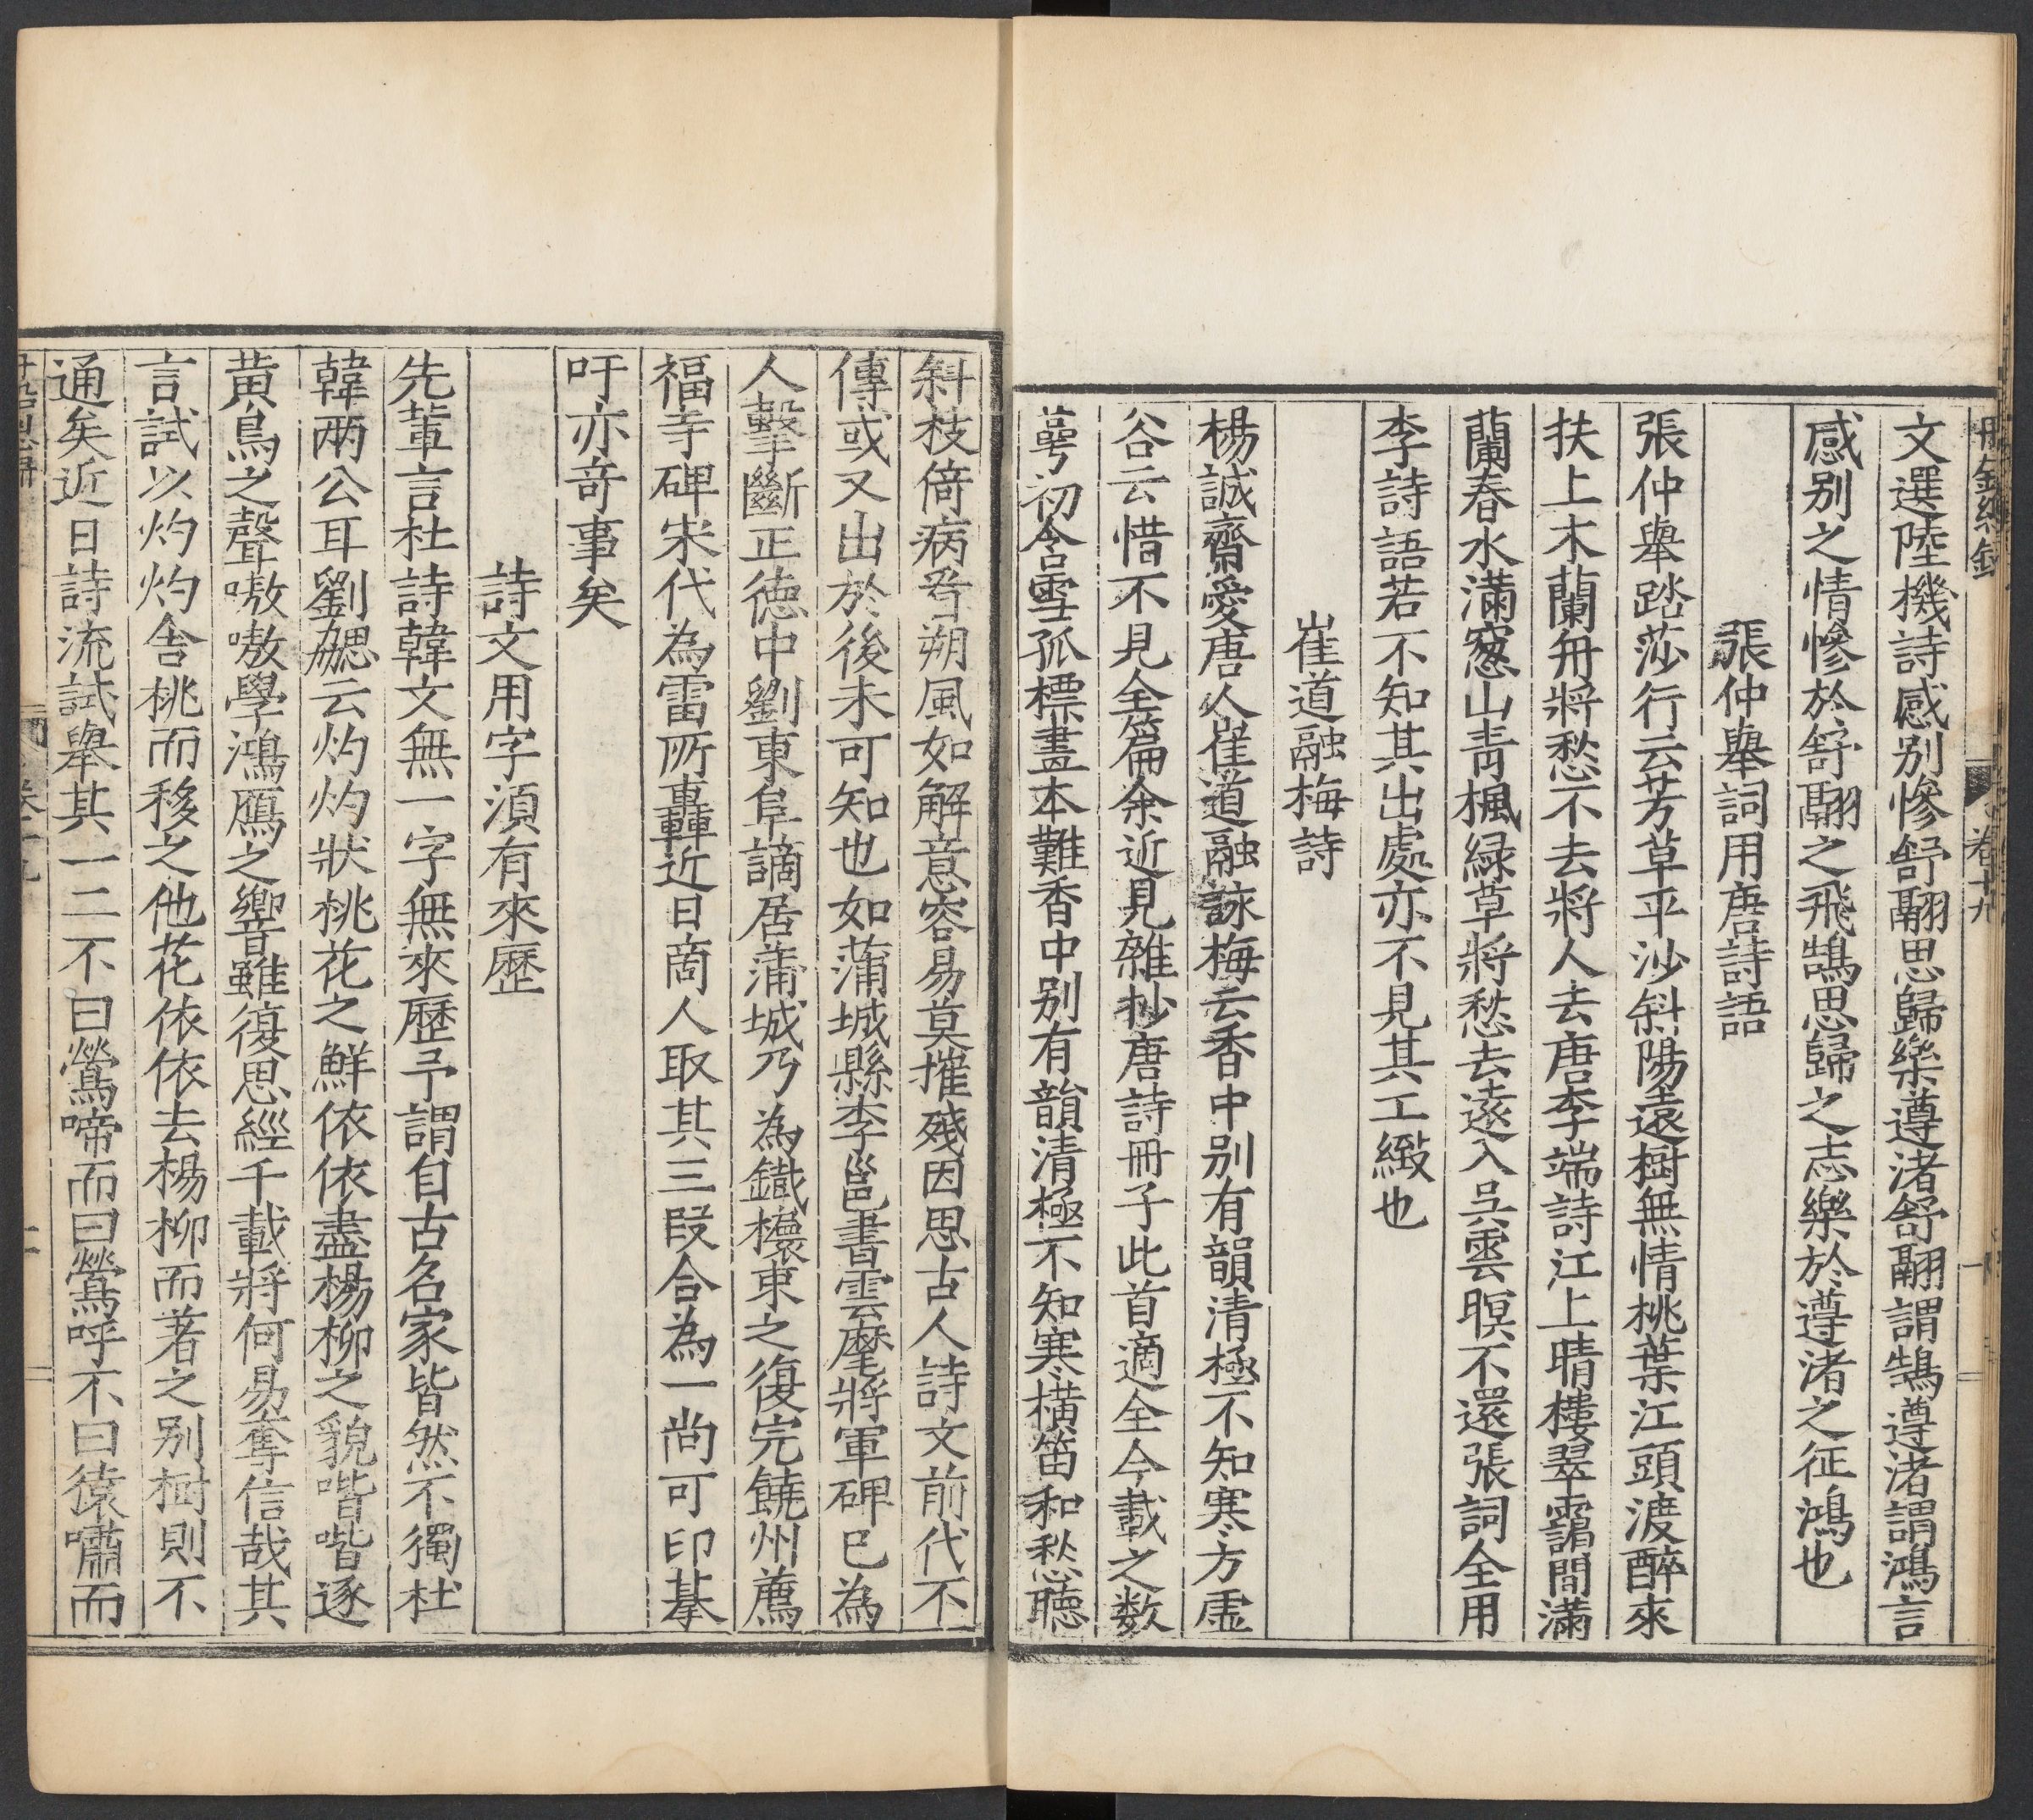 丹鉛總錄
卷十九
一
文選陸機詩感别慘舒翮思歸樂遵渚舒翮謂鵠遵渚謂鴻言
感别之情慘於舒翮之飛鵠思歸之志樂於遵渚之征鴻也
張仲舉詞用唐詩語
張仲舉踏莎行云芳草平沙斜陽遠樹無情桃葉江頭渡醉來
扶上木蘭舟將愁不去將人去唐李端詩江上晴樓翠靄間滿
蘭春水滿窓山青楓緑草將愁去遠入吳雲暝不還張詞全用
李詩語若不知其出處亦不見其工緻也
崔道融梅詩
楊誠齋愛唐人崔道融詠梅云香中别有韻清極不知寒方虛
谷云惜不見全篇余近見雜抄唐詩冊子此首適全今載之数
萼初含雪孤標畫本難香中别有韻清極不知寒横笛和愁聽
斜枝倚病㸔朔風如解意容易莫摧殘因思古人詩文前代不
傳或又出於後未可知也如蒲城縣李邕書雲麾將軍碑已為
人擊斷正徳中劉東阜謫居蒲城乃為鐵檥束之復完饒州薦
福寺碑宋代為雷所轟近日啇人取其三段合為一尚可印摹
吁亦竒事矣
詩文用字須有來歷
先輩言杜詩韓文無一字無來歷予謂自古名家皆然不獨杜
韓兩公耳劉勰云灼灼狀桃花之鮮依依盡楊柳之貌喈喈逐
黄鳥之聲嗷嗷學鴻鴈之響雖復思經千載將何易奪信哉其
言試以灼灼舍桃而移之他花依依去楊柳而著之别樹則不
通矣近日詩流試舉其一二不曰鶯啼而曰鶯呼不曰猿嘯而